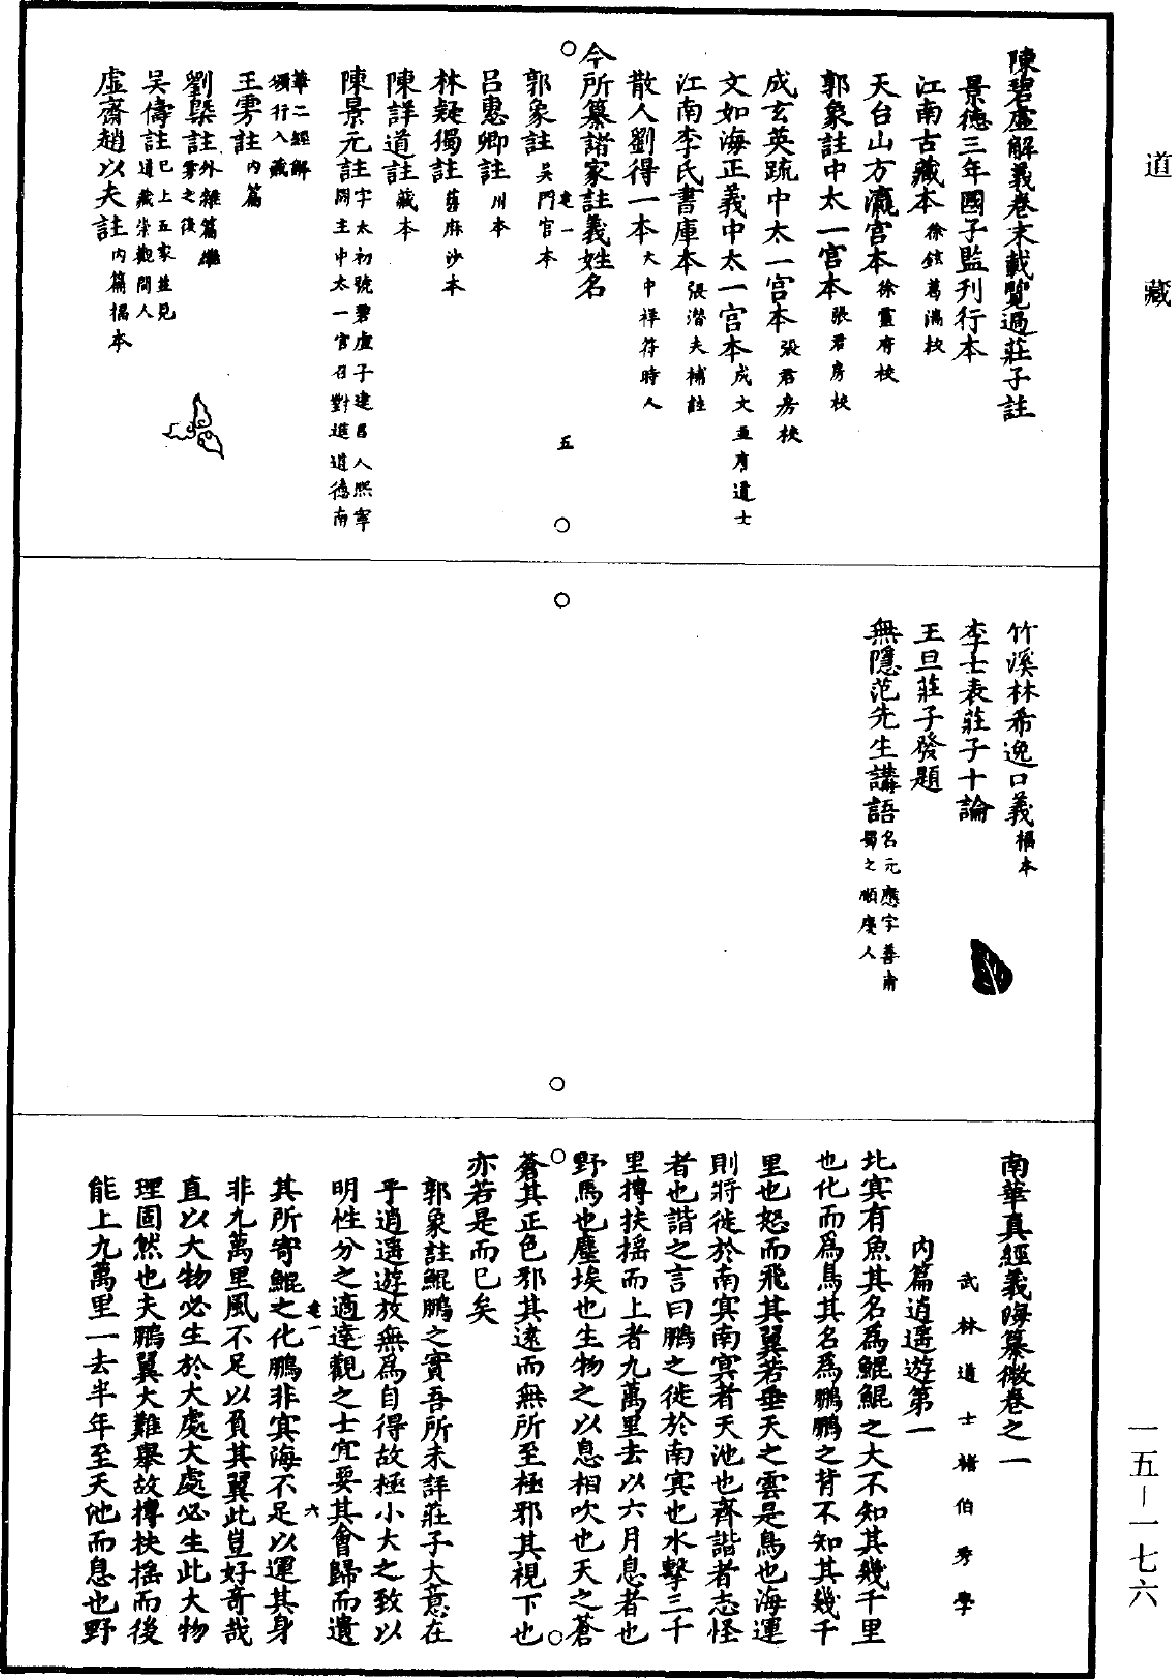 道藏
陳碧虛解義卷末載覽過莊子註
景德三年國子監刊行本
江南古藏本徐鉉葛湍校
天台山方瀛宮本徐靈府校
郭象註中太一宮本張君房校
成玄英疏中太一宮本張君房校
文如海正義中太一宮本成文並唐道士
江南李氏書庫本張潛夫補註
散人劉得一本大中祥符時人
今所纂諸家註義姓名
卷一 五
郭象註吳門官本
呂惠卿註川本
林疑獨註舊麻沙本
陳詳道註藏本
陳景元註字太初號碧虛子建昌人熙寧
間主中太一宮召對進道德南
華二經解
頒行入藏
王雱註內篇
劉槩註外雜篇繼
雱之後
吳儔註已上五家並見
道藏崇觀間人
虛齋趙以夫註內篇福本
竹溪林希逸口義福本
李士表莊子十論
王旦莊子發題
無隱范先生講語名元應字善甫
蜀之順慶人
南華真經義海纂微卷之一
武林道士褚伯秀學
內篇逍遙遊第一
北冥有魚其名為鯤鯤之大不知其幾千里
也化而為鳥其名為鵬鵬之背不知其幾千
里也怒而飛其翼若垂天之雲是鳥也海運
則將徙於南冥南冥者天池也齊諧者志怪
者也諧之言曰鵬之徙於南冥也水擊三千
里摶扶搖而上者九萬里去以六月息者也
野馬也塵埃也生物之以息相吹也天之蒼
蒼其正色邪其遠而無所至極邪其視下也
亦若是而已矣
郭象註鯤鵬之實吾所未詳莊子大意在
乎逍遙遊放無為自得故極小大之致以
明性分之適達觀之士宜要其會歸而遺
卷一 六
其所寄鯤之化鵬非冥海不足以運其身
非九萬里風不足以負其翼此豈好奇哉
直以大物必生於大處大處必生此大物
理固然也夫鵬翼大難舉故摶扶搖而後
能上九萬里一去半年至天池而息也野
一五—一七六